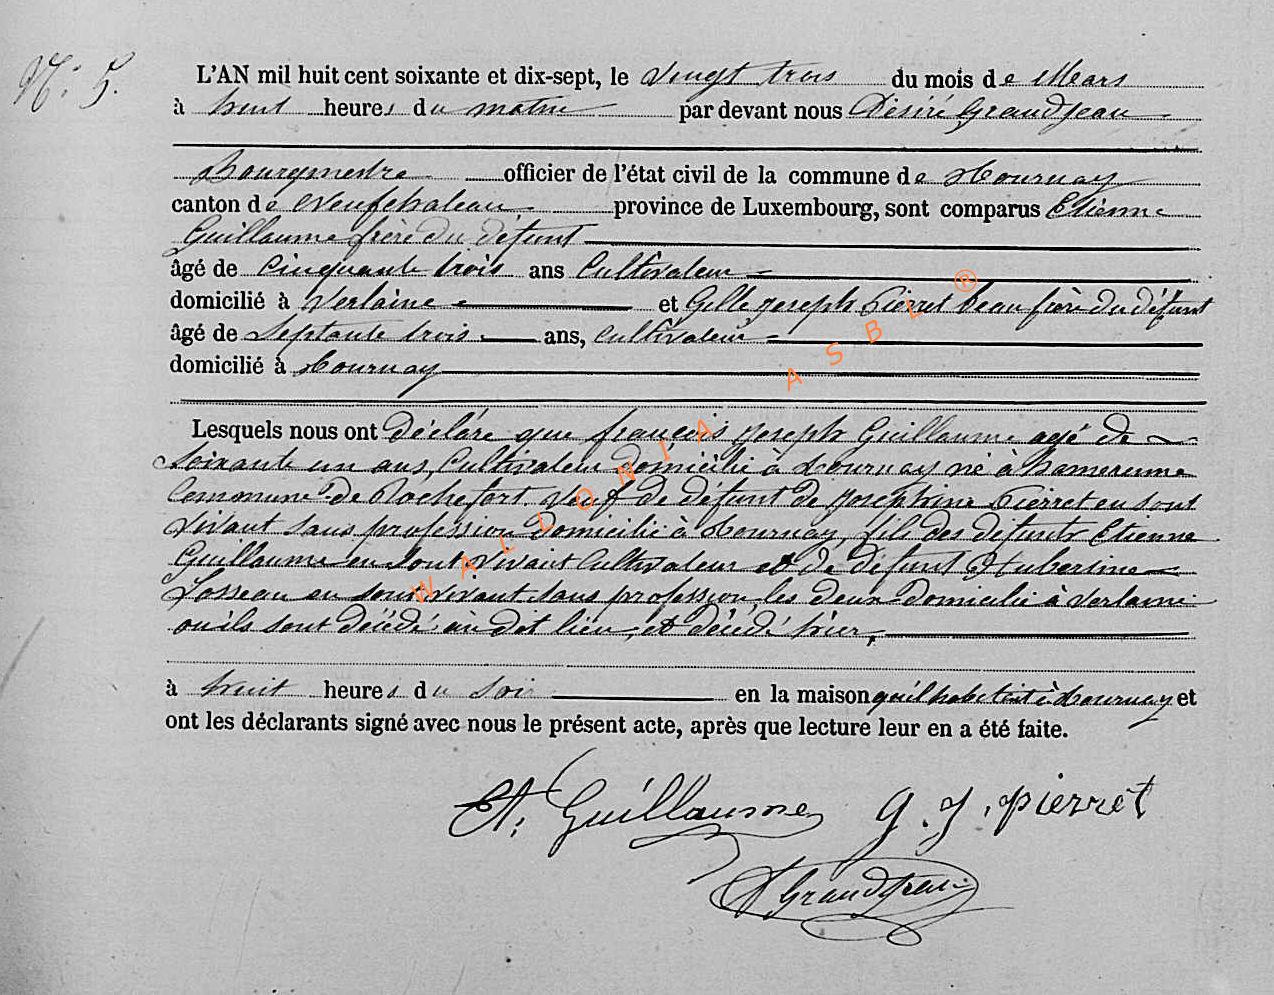 N° 5.
L'AN mil huit cent soixante et dix-sept, le vingt trois du mois de Mars
à huit heures du matin par devant nous Désiré Grandjean
Bourgmestre officier de l'état civil de la commune de Tournay
canton de Neufchateau province de Luxembourg, sont comparus Etienne
Guillaume frère du défunt
âgé de cinquante trois ans Cultivateur
domicilié à Verlaine et Gille joseph Pierret beau frère du défunt
âgé de Septante trois ans, cultivateur
domicilié à Tournay
Lesquels nous ont déclaré que françois joseph Guillaume agé de
Soixante un ans, Cultivateur domicilié à Tournay né à hamerenne
Commune de Rochefort Veuf de défunt de josephine Pierret en sont
vivant sans profession domicilié à Tournay, fils des défunts Etienne
Guillaume en sont vivant Cultivateur et de défunt Hubertine
Losseau en sont vivant sans profession, les deux Domicilié à Verlaine
où ils sont décédé au dit lieu, et décédé hier,
à huit heures du soir en la maison qu'il habitait à Tournay et
ont les déclarants signé avec nous le présent acte, après que lecture leur en a été faite.
Et. Guillaume g. J. pierret
D Grandjean
WALLONIA ASBL ®